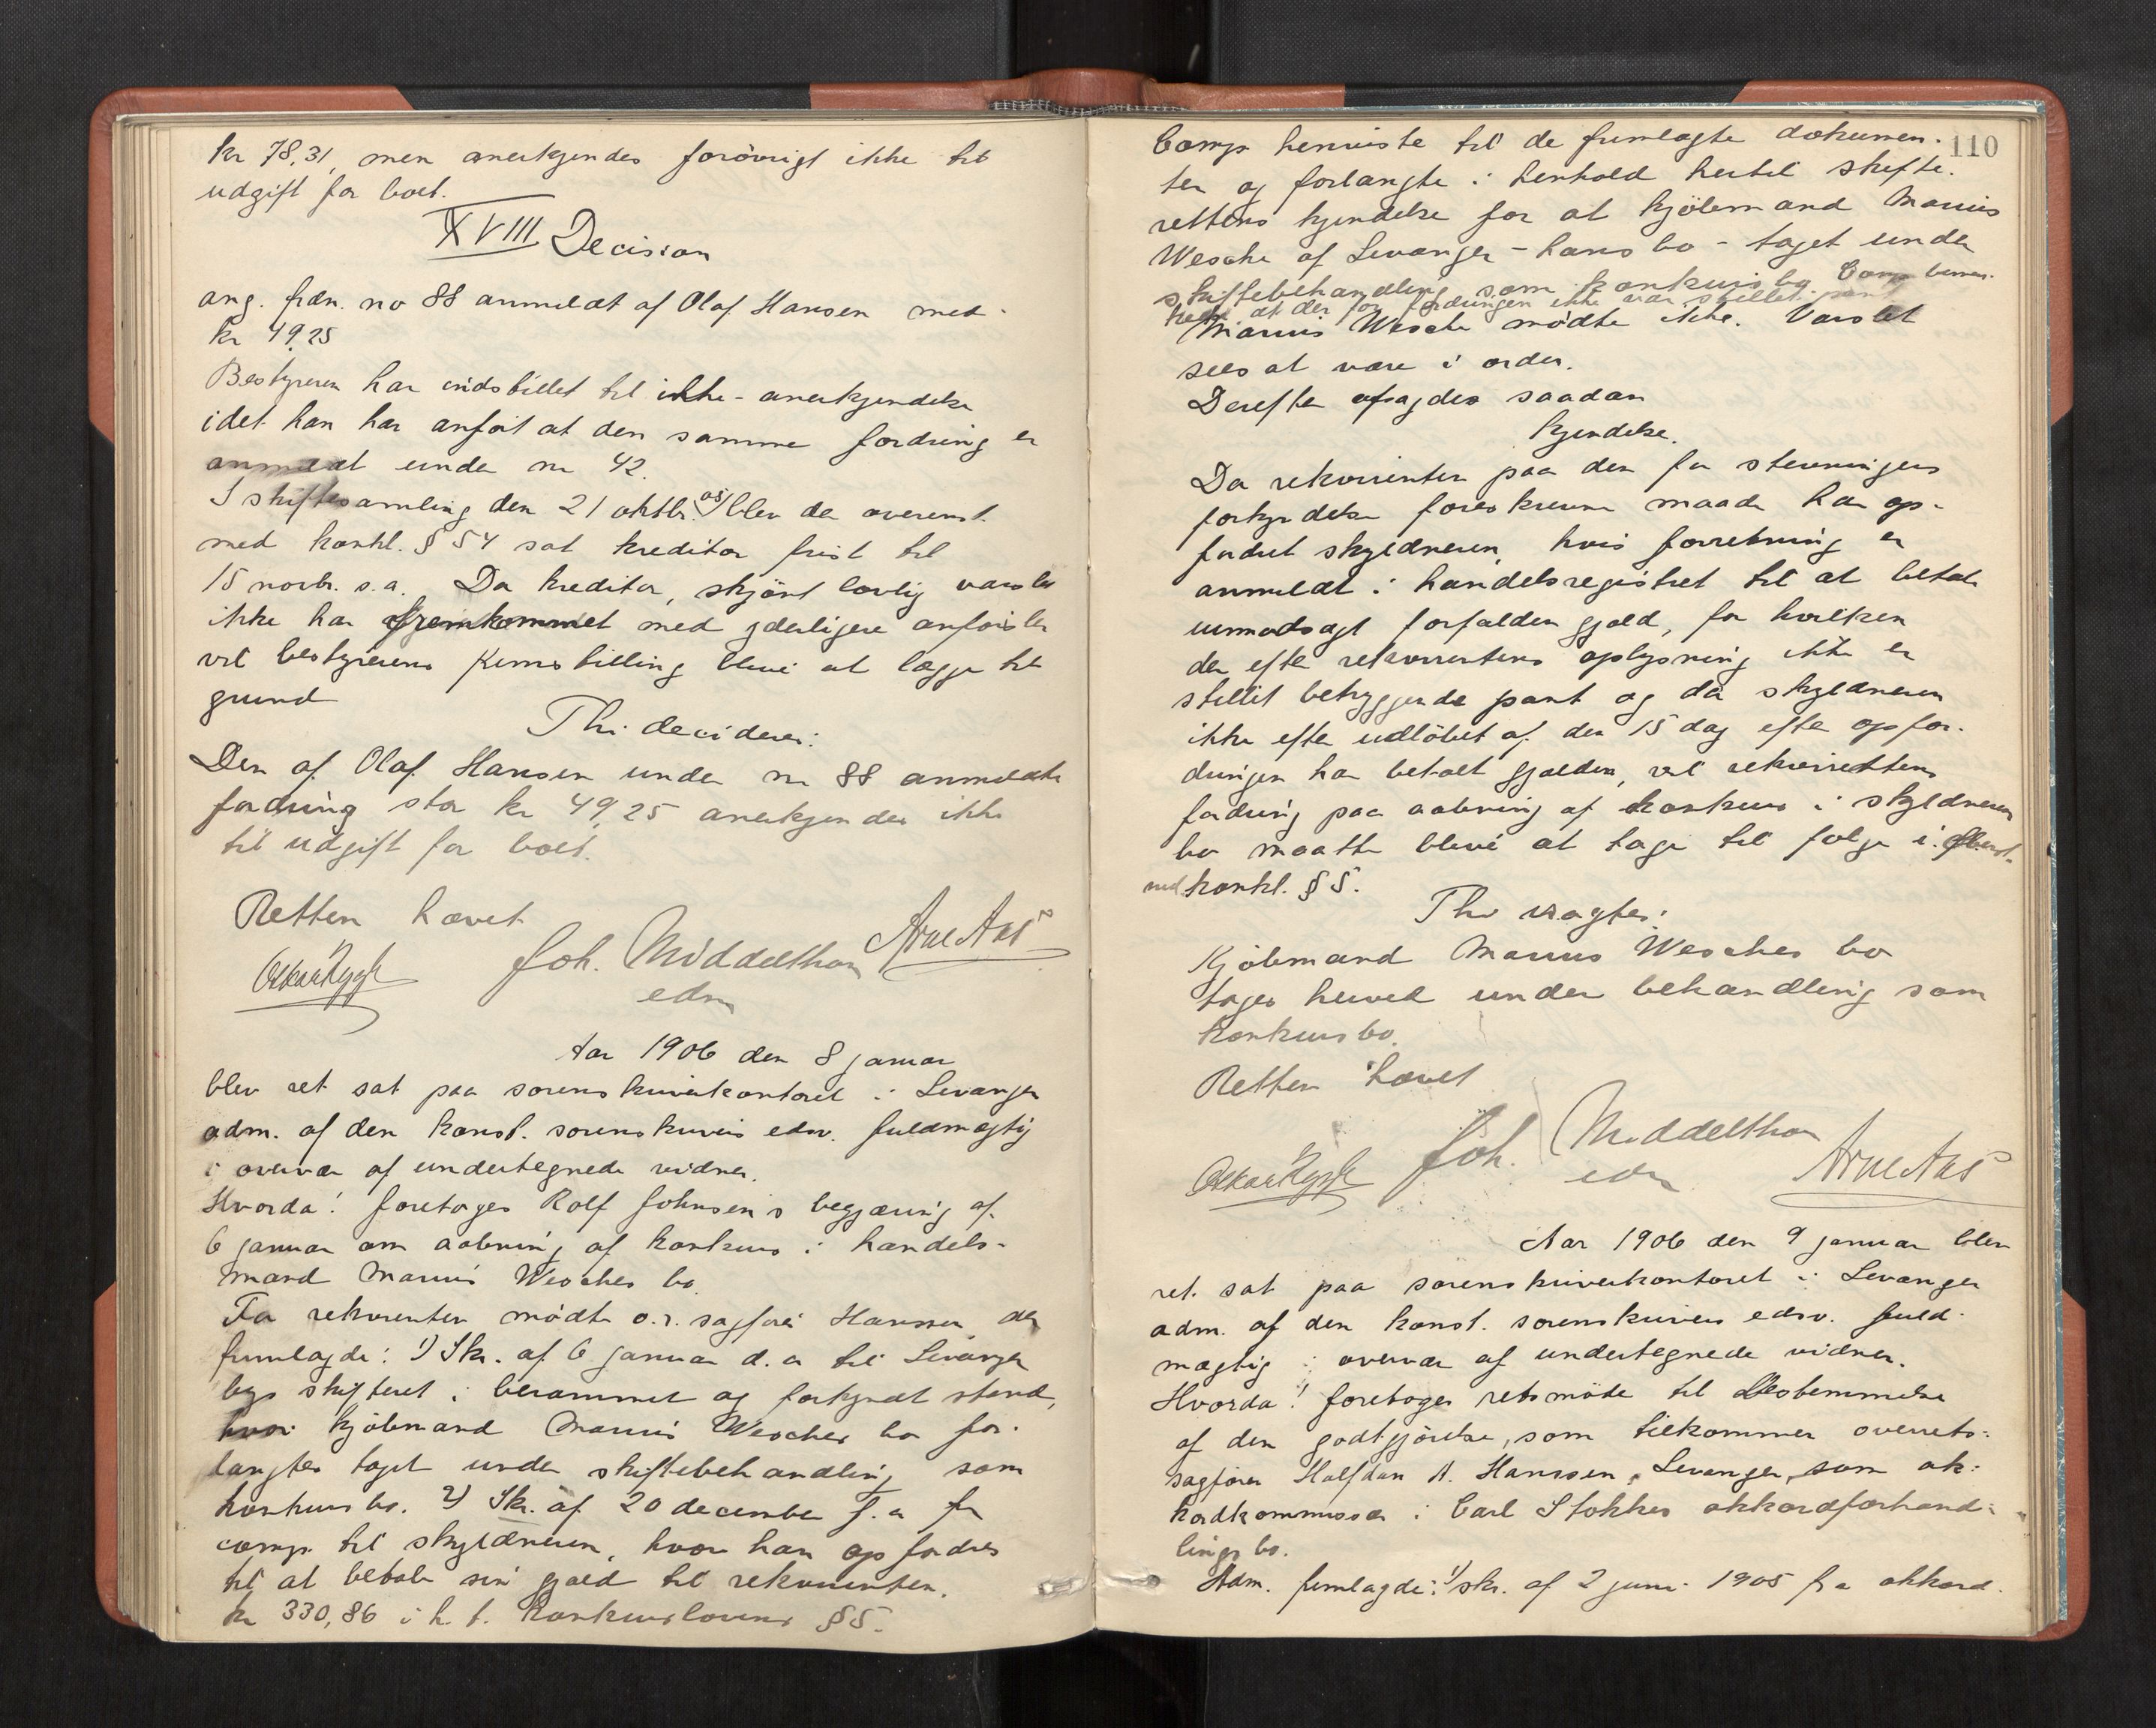 kr 78,31, men anerkjendes forövrigt ikke til
udgift for boet.
XVIII Decision
ang. frdn. no 88 anmeldt af Olaf Hansen med
kr 49,25
Bestyreren har indstillet til ikke-anerkjendelse
idet han har anført at den samme fordring er
anmeldt under nr 42.
I skiftesamling den 21 oktbr. 05 blev der overenst.
med konkl. § 54 sat kreditor frist til
15 novbr. s.a. Da kreditor, skjönt lovlig varslet
ikke har fremkommet med yderligere anførsler
vil bestyrerens indstilling blive at lægge til
grund
Thi decideres:
Den af Olaf Hansen under nr 88 anmeldte
fordring stor kr 49,25 anerkjendes ikke
til udgift for boet.
Retten hævet
Joh. Middelthon Arne Aas
edsv
Aar 1906 den 8 januar
blev ret sat paa sorenskriverkontoret i Levanger
adm. af den konst. sorenskrivers edsv. fuldmægtig
i overvær af undertegnede vidner.
Hvorda! foretoges Rolf Johnsen's begjæring af
6 januar om aabning af konkurs i handels-
mand Marius Wesches bo.
For rekvirenten mödte o.r. sagfører Hanssen, der
fremlagde: 1) Skr. af 6 januar d.a. til Levanger
bys skifteret i berammet og forkyndt stand,
hvor kjöbmand Marius Wesches bo for-
langtes taget under skiftebehandling som
konkursbo. 2) Skr. af 20 december f.a. fra
comp. til skyldneren, hvor han opfordres
til at betale sin gjæld til rekvirenten.
kr 330,86 i h.t. konkurslovens § 5.
110
Comp henviste til de fremlagte dokumen-
ter og forlangte i henhold hertil skifte-
rettens kjendelse for at kjöbmand Marius
Wesche af Levanger - hans bo - taget under
skiftebehandling som konkursbo. Comp bemær-
kede at der for fordringen ikke var stillet pant
Marius Wesche mödte ikke. Varslet
sees at være i orden.
Derefter afsagdes saadan
Kjendelse.
Da rekvirenten paa den for stevningers
forkyndelse foreskrevne maade har op-
fordret skyldneren, hvis forretning er
anmeldt i handelsregistret til at betale
uimodsagt forfalden gjæld, for hvilken
der efter rekvirentens oplysning ikke er
stillet betryggende pant og da skyldneren
ikke efter udlöbet af den 15 dag efter opfor-
dringen har betalt gjælden, vil rekvirentens
fordring paa aabning af konkurs i skyldnerens
bo maatte blive at tage til følge i overenst.
med konkl. § 5.
Thi eragtes:
Kjöbmand Marius Wesches bo
tages herved under behandling som
konkursbo.
Retten hævet
Joh. Middelthon Arne Aas
edsv
Aar 1906 den 9 januar blev
ret sat paa sorenskriverkontoret i Levanger
adm. af den konst. sorenskrivers edsv. fuld-
mægtig i overvær af undertegnede vidner.
Hvorda! foretoges retsmöde til bestemmelse
af den godtgjörelse, som tilkommer overrets-
sagfører Halfdan A. Hanssen, Levanger, som ak-
kordkommissær i Carl Stokkes akkordforhand-
lings bo.
Adm. fremlagde: 1) skr. af 2 juni 1905 fra akkord